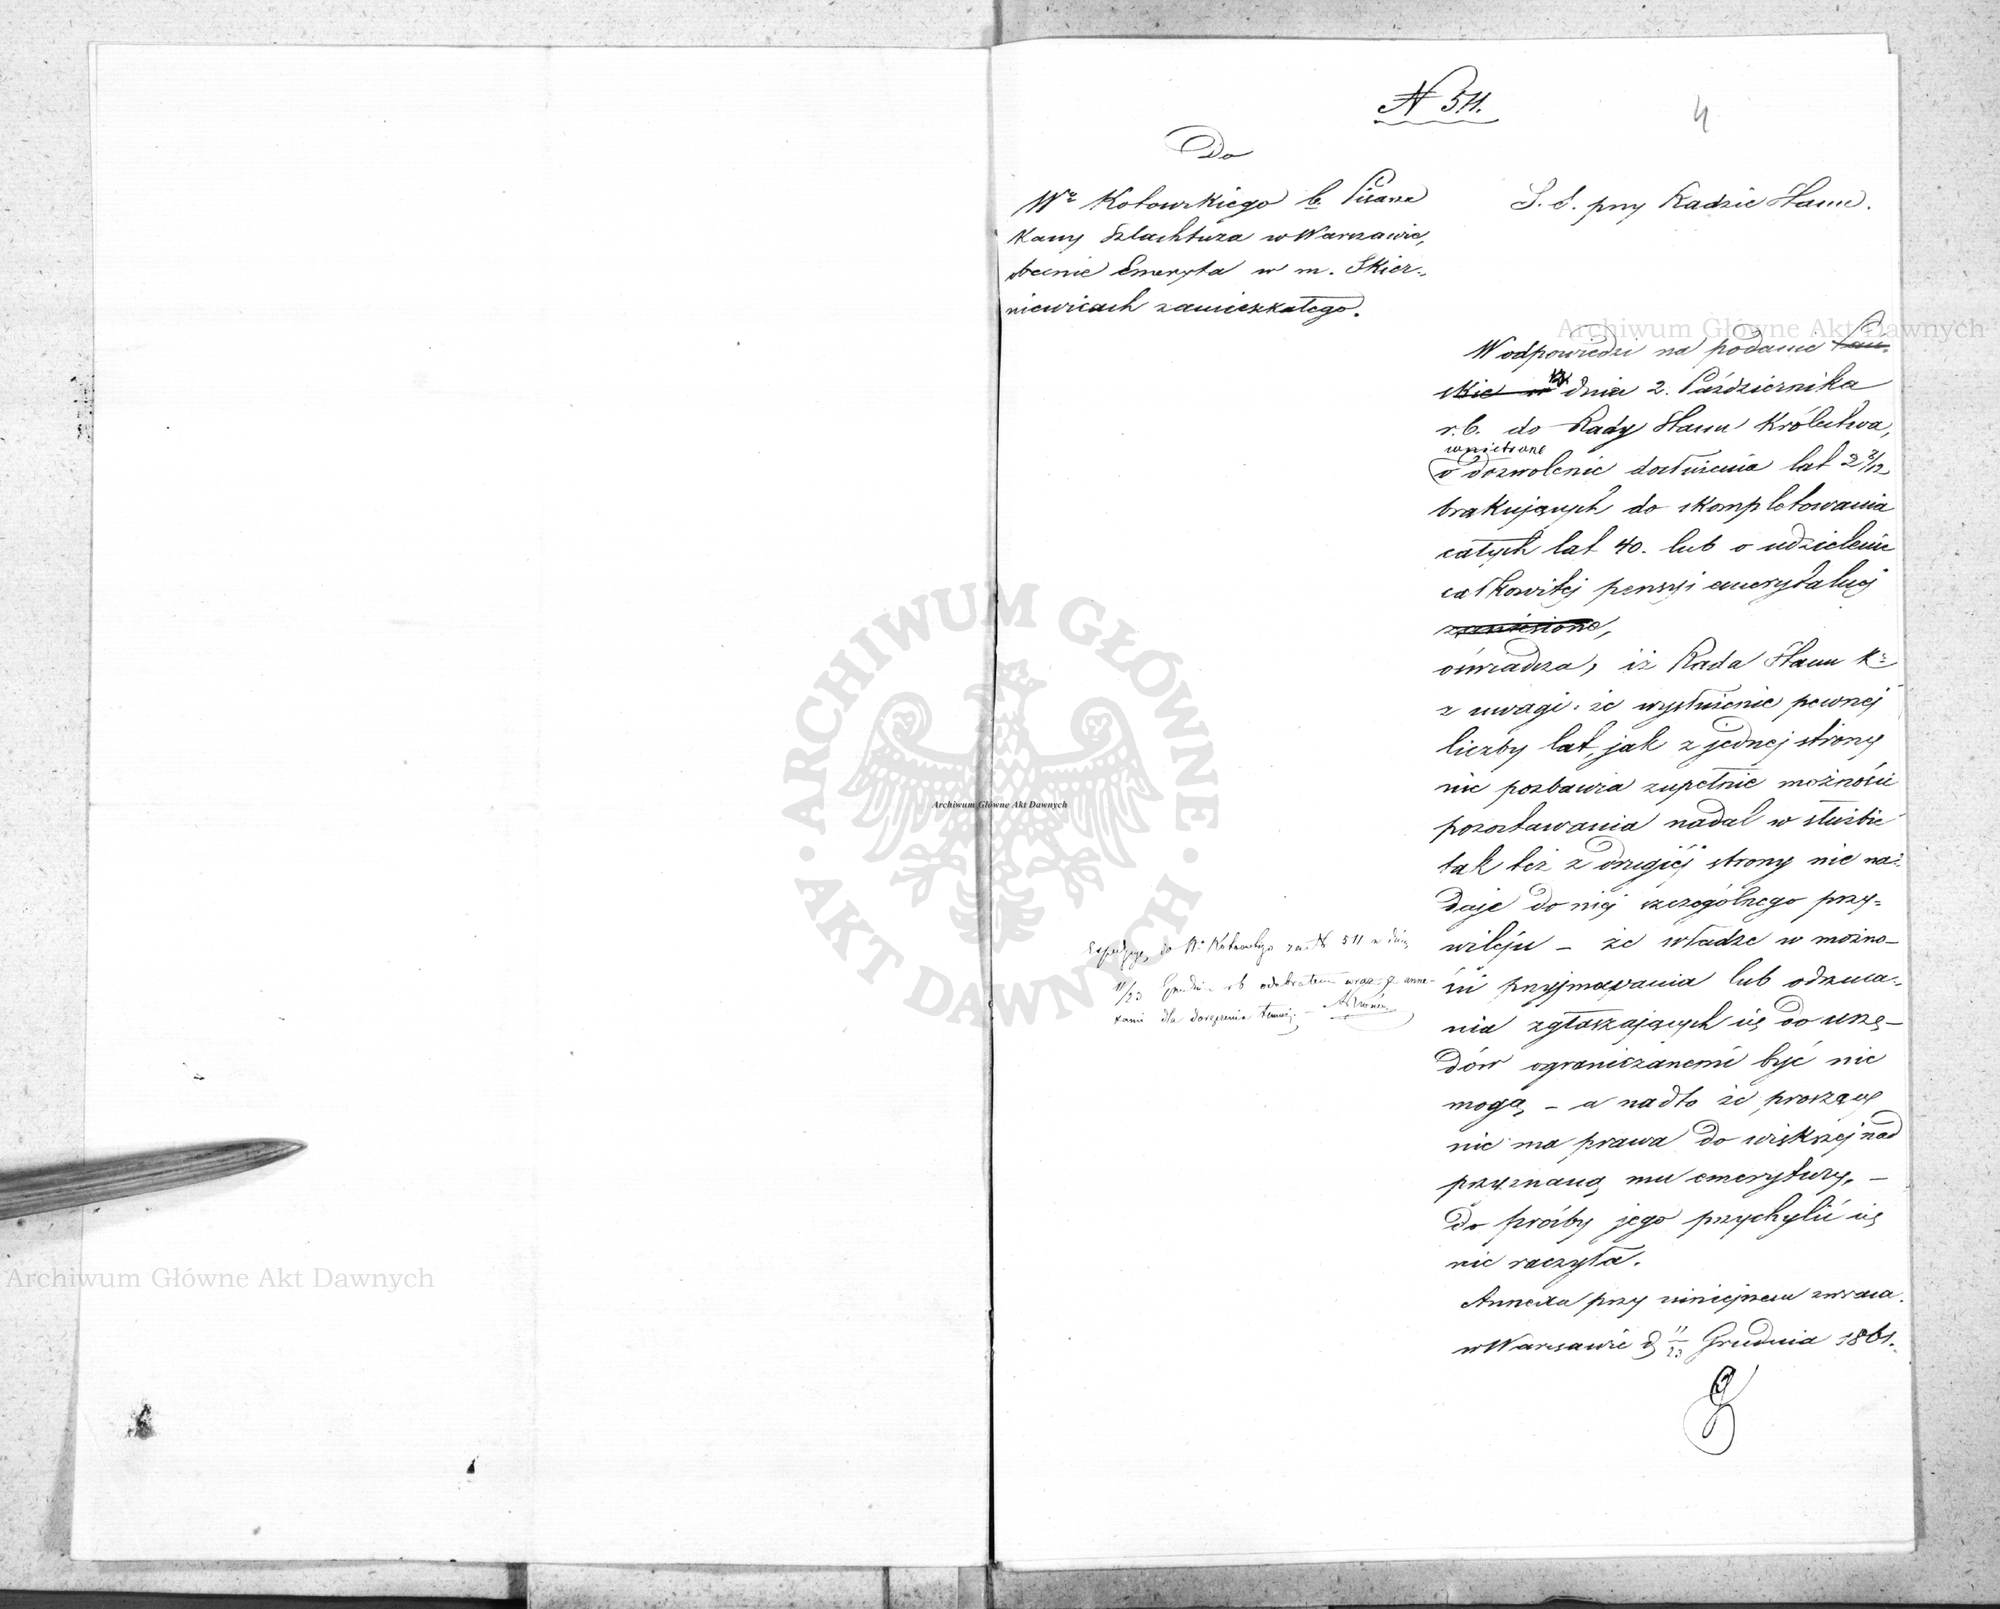 N 511.
4
Do
Wo Kotowskiego b. Pisarza
Kassy Szlachtuza w Warszawie,
obecnie Emeryta w m. Skier-
niewicach zamieszkałego.
S. S. przy Radzie Stanu.
W odpowiedzi na podanie Pań-
skie w dniu 2. Października
r. b. do Rady Stanu Królestwa,
wniesione
o dozwolenie dosłużenia lat 2 2/12
brakujących do skompletowania
całych lat 40. lub o udzielenie
całkowitej pensyi emerytalnej
zaniesione,
oświadcza, iż Rada Stanu K:
z uwagi, że wysłużenie pewnej
liczby lat, jak z jednej strony
nie pozbawia zupełnie możności
pozostawania nadal w służbie
tak też z drugiéj strony nie na-
daje do niej szczególnego przy-
wileju – że władze w możno-
ści przyjmowania lub odrzuca-
nia zgłaszających się do urzę-
dów ograniczanemi być nie
mogą, – a nadto że proszący
nie ma prawa do większej nad
przyznaną mu emerytury, –
do prośby jego przychylić się
nie raczyła.
Annexa przy niniejszem zwraca.
w Warszawie d 11/23 Grudnia 1861.
Expedycyę do Wo Kotowskiego za N 511 z dnia
11/23 Grudnia rb odebrałem wraz z anne-
xami dla doręczenia temuż. –
Archiwum Główne Akt Dawnych
Archiwum Główne Akt Dawnych
Archiwum Główne Akt Dawnych
ARCHIWUM GŁÓWNE
AKT DAWNYCH